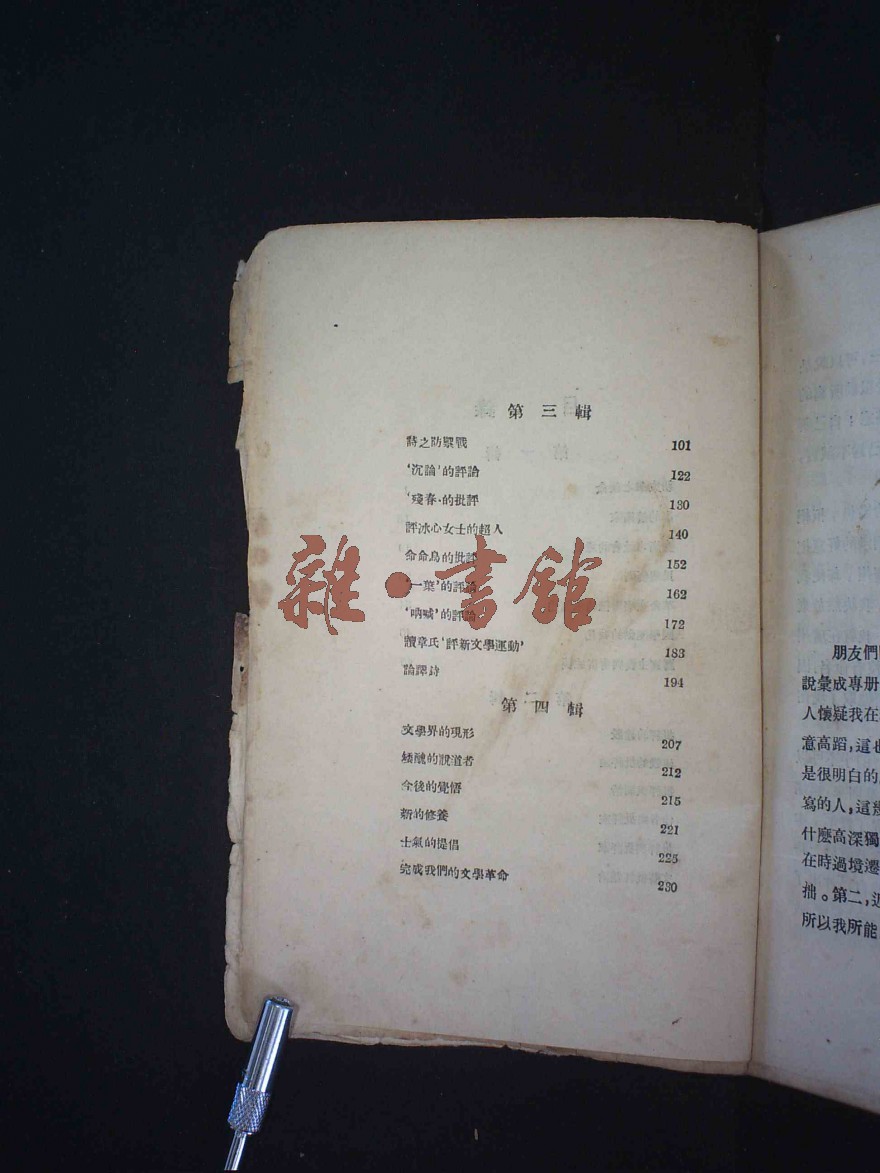 第三輯
詩之防禦戰 101
‘沉淪’的評論 122
‘殘春’的批評 130
評冰心女士的超人 140
命命鳥的批評 152
‘一葉’的評論 162
‘吶喊’的評論 172
讀章氏‘評新文學運動’ 183
論譯詩 194
第四輯
文學界的現形 207
矮醜的說道者 212
今後的覺悟 215
新的修養 221
士氣的提倡 225
完成我們的文學革命 230
雜·書館
朋友們
說彙成專册
人懷疑我在
意高蹈,這也
是很明白的
寫的人,這幾
什麼高深獨
在時過境遷
拙。第二,近
所以我所能